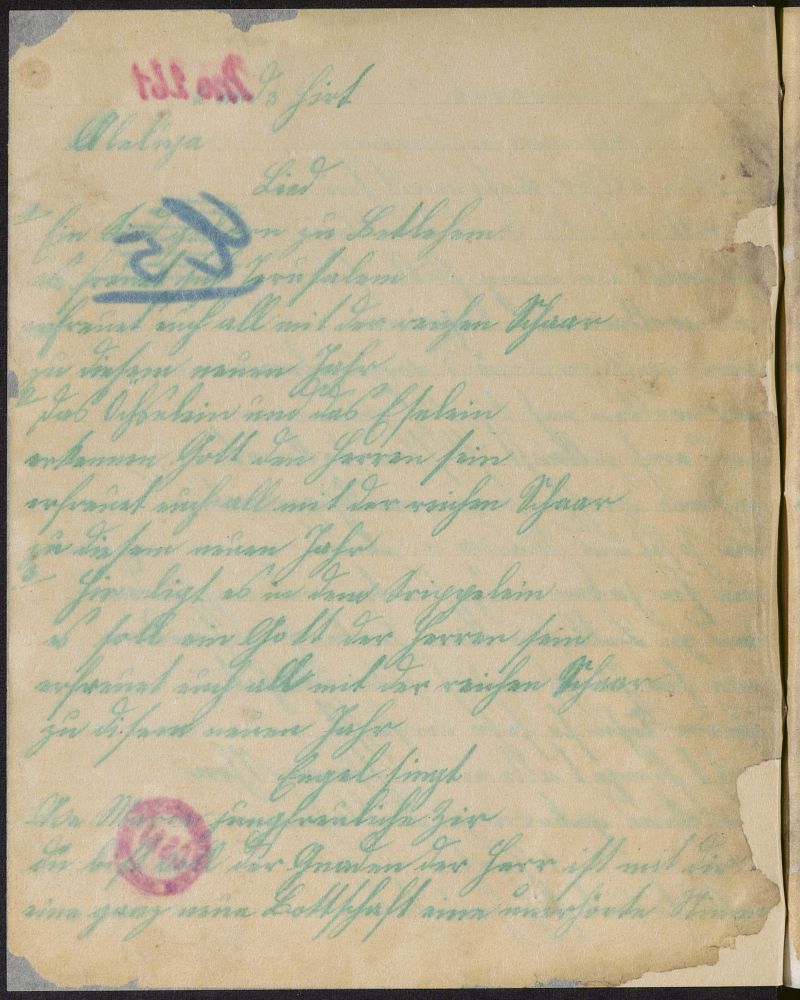 Hirt
Aleluja
Lied
1 Ein zu Bethlehem
es freuet sich Jerusalem
erfreuet euch all mit der reichen Schaar
zu diesem neuen Jahr
2 Das Öchselein und das Eselein
erkennen Gott den Herren sein
erfreuet euch all mit der reichen Schaar
zu diesem neuen Jahr
3 Hir ligt es in dem Krippelein
es soll ein Gott der Herren sein
erfreuet euch all mit der reichen Schaar
zu disem neuen Jahr
Engel singt
Ave Maria jungfreuliche Zir
du bist voll der Gnaden der Herr ist mit dir
eine ganz neue Bottschaft eine unerhörte